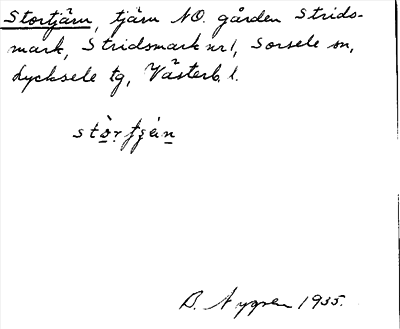 Stortjärn, tjärn NO. gården Strids-
mark, Stridsmark nr 1, Sorsele sn,
Lycksele tg, Västerb. l.
B. 1935.